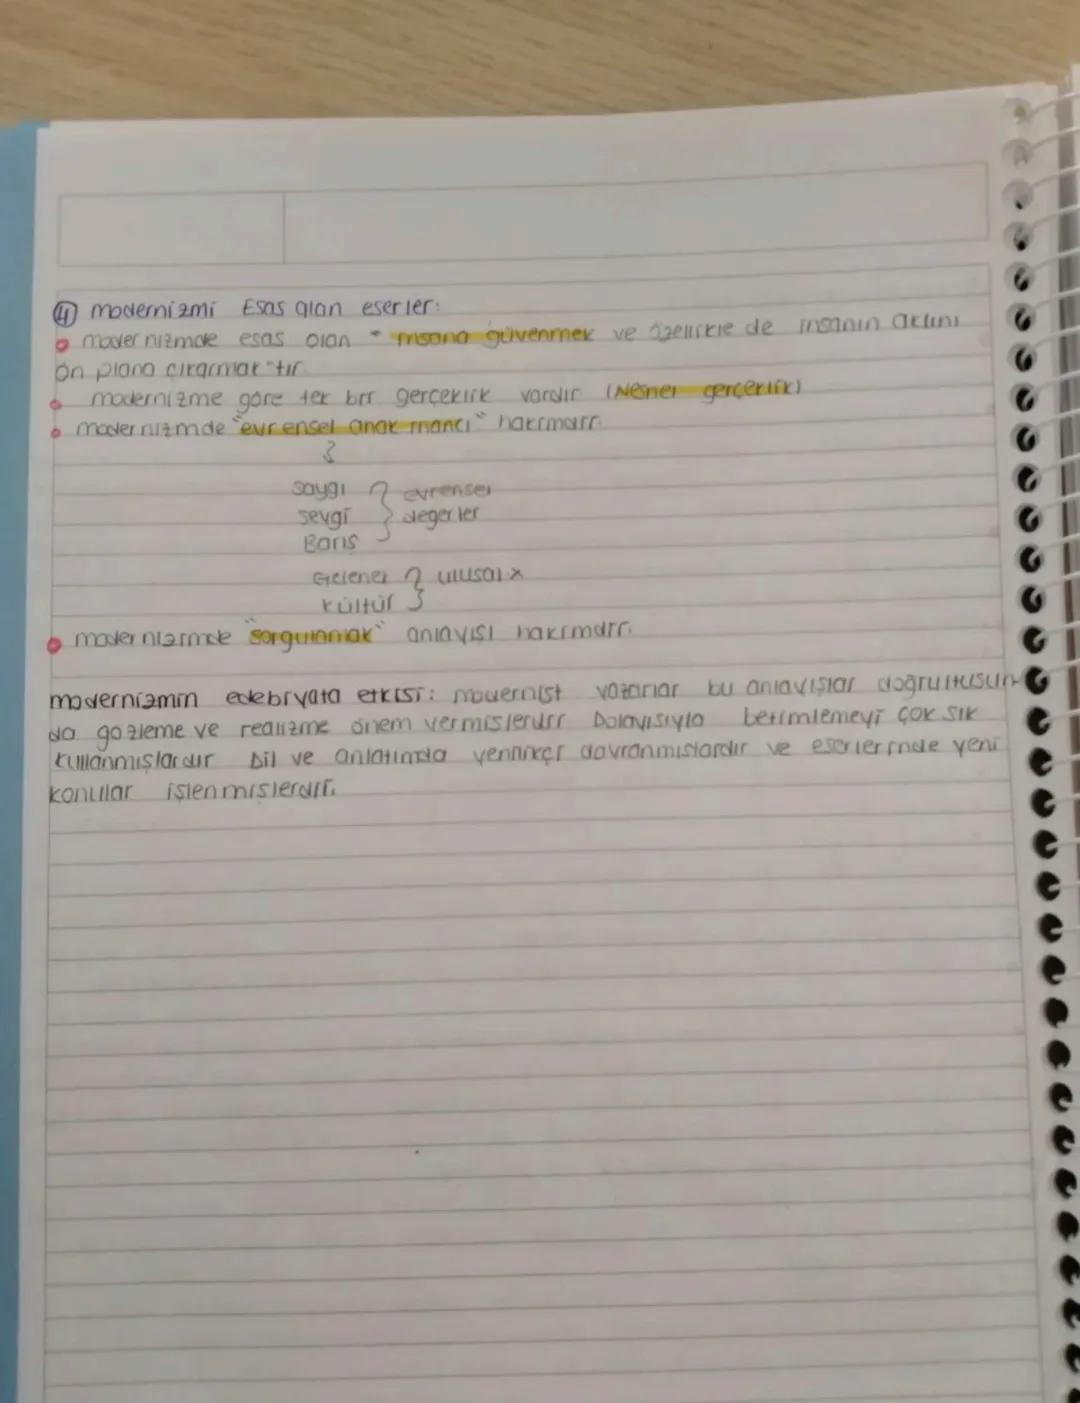 ④ modernizmi Esas alan eserler:
modernizmde esas olan "insana güvenmek ve özellikle de insanın aklını
ön plana çıkarmak"tır.
modernizme göre tek bir gerçeklik vardır (Nesnel gerçeklik)
modernizmde "evrensel anak inancı" hakimdir.
saygı } evrensel
sevgi } değerler
Barış
Gelenek } ulusal x
kültür
modernizmde "sorgulamak" anlayışı hakimdir.
modernizmin edebiyata etkisi: modernist yazarlar bu anlayışlar doğrultusun
da gözleme ve realizme önem vermişlerdir Dolayısıyla betimlemeyi çok sık
kullanmışlardır Dil ve anlatımda yenilikçi davranmışlardır ve eserlerinde yeni
konular işlenmişlerdir.